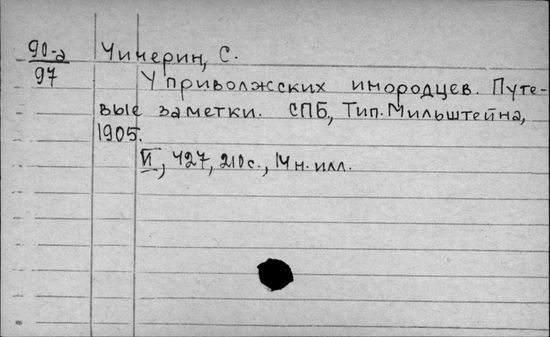 90-а
97
Чичерин, С.
У приволжских инородцев. Путе-
вые заметки. СПБ, Тип. Мильштейна,
1905.
II, 427, 210 с., 14 н. илл.